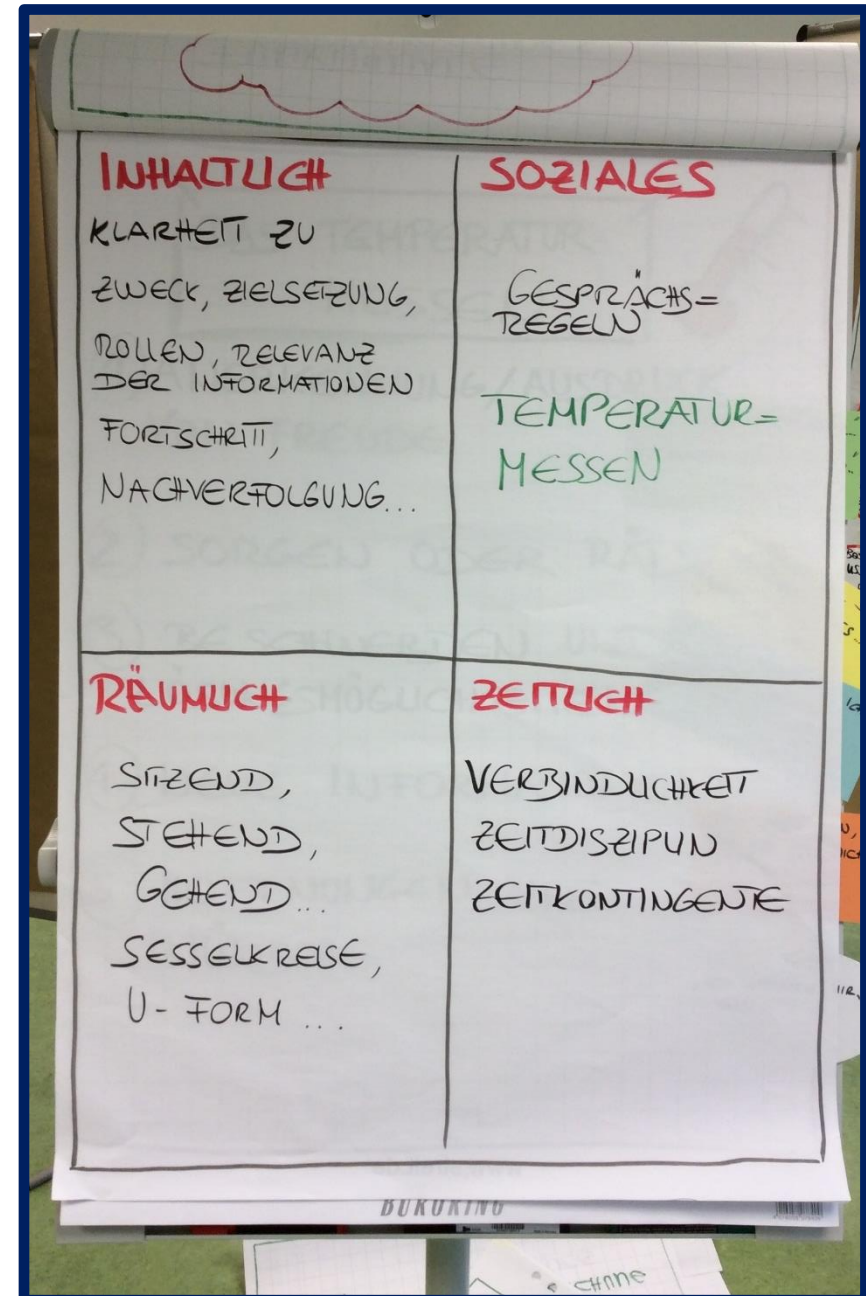 INHALTLICH
KLARHEIT ZU
ZWECK, ZIELSETZUNG,
ROLLEN, RELEVANZ
DER INFORMATIONEN
FORTSCHRITT,
NACHVERFOLGUNG...
SOZIALES
GESPRÄCHS=
REGELN
TEMPERATUR=
MESSEN
RÄUMLICH
SITZEND,
STEHEND,
GEHEND...
SESSELKREISE,
U-FORM ...
ZEITLICH
VERBINDLICHKEIT
ZEITDISZIPLIN
ZEITKONTINGENTE